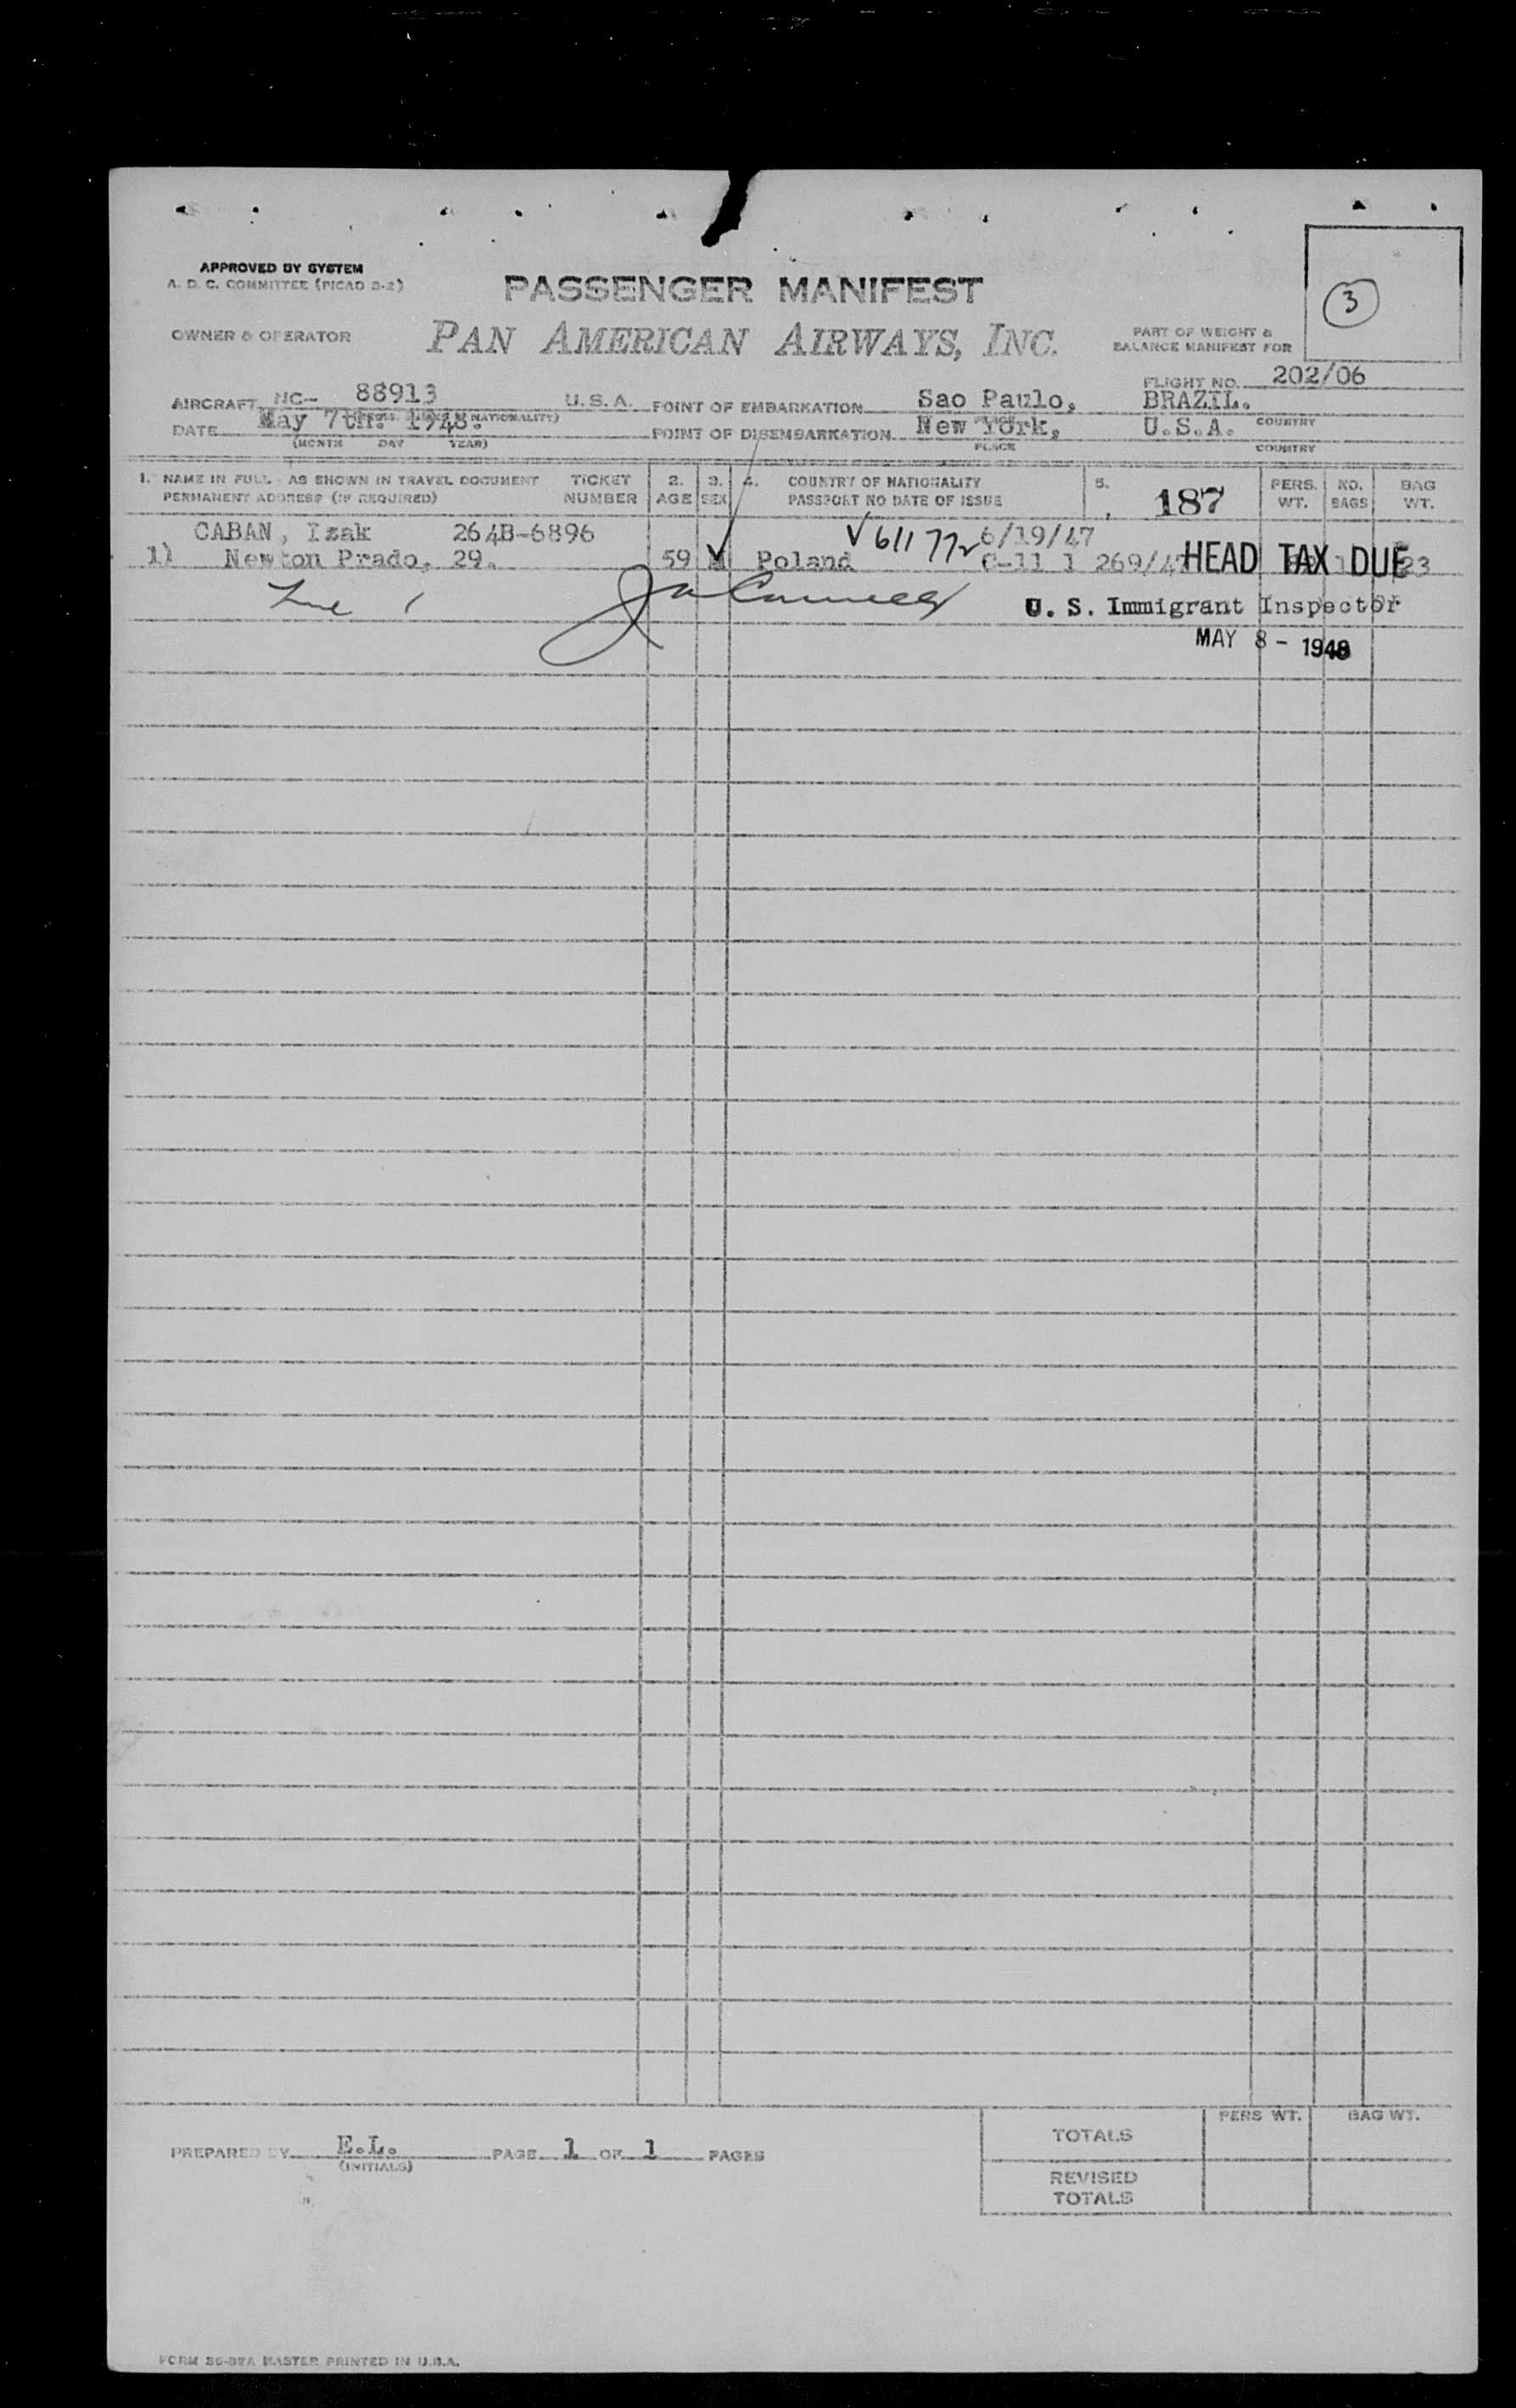 3
APPROVED BY SYSTEM
A. D. C. COMMITTEE (PICAO 3-2)
PASSENGER MANIFEST
OWNER & OPERATOR PAN AMERICAN AIRWAYS, INC. PART OF WEIGHT &
BALANCE MANIFEST FOR
FLIGHT NO. 202/06
AIRCRAFT NC- 88913 U.S.A. POINT OF EMBARKATION Sao Paulo, BRAZIL.
NATIONALITY) PLACE COUNTRY
DATE May 7th. 1948. POINT OF DISEMBARKATION New York, U.S.A.
(MONTH DAY YEAR) PLACE COUNTRY
1. NAME IN FULL - AS SHOWN IN TRAVEL DOCUMENT TICKET 2. 3. 4. COUNTRY OF NATIONALITY 5. 187 PERS. NO. BAG
PERMANENT ADDRESS (IF REQUIRED) NUMBER AGE SEX PASSPORT NO DATE OF ISSUE WT. BAGS WT.
CABAN, Izak 264B-6896 V 611772 6/19/47
1) Newton Prado, 29. 59 M Poland 269/47 HEAD TAX DUE 23
Line 1 U. S. Immigrant Inspector
MAY 8 - 1948
PERS WT. BAG WT.
TOTALS
PREPARED BY E.L. PAGE 1 OF 1 PAGES
(INITIALS)
REVISED
TOTALS
MASTER PRINTED IN U.S.A.